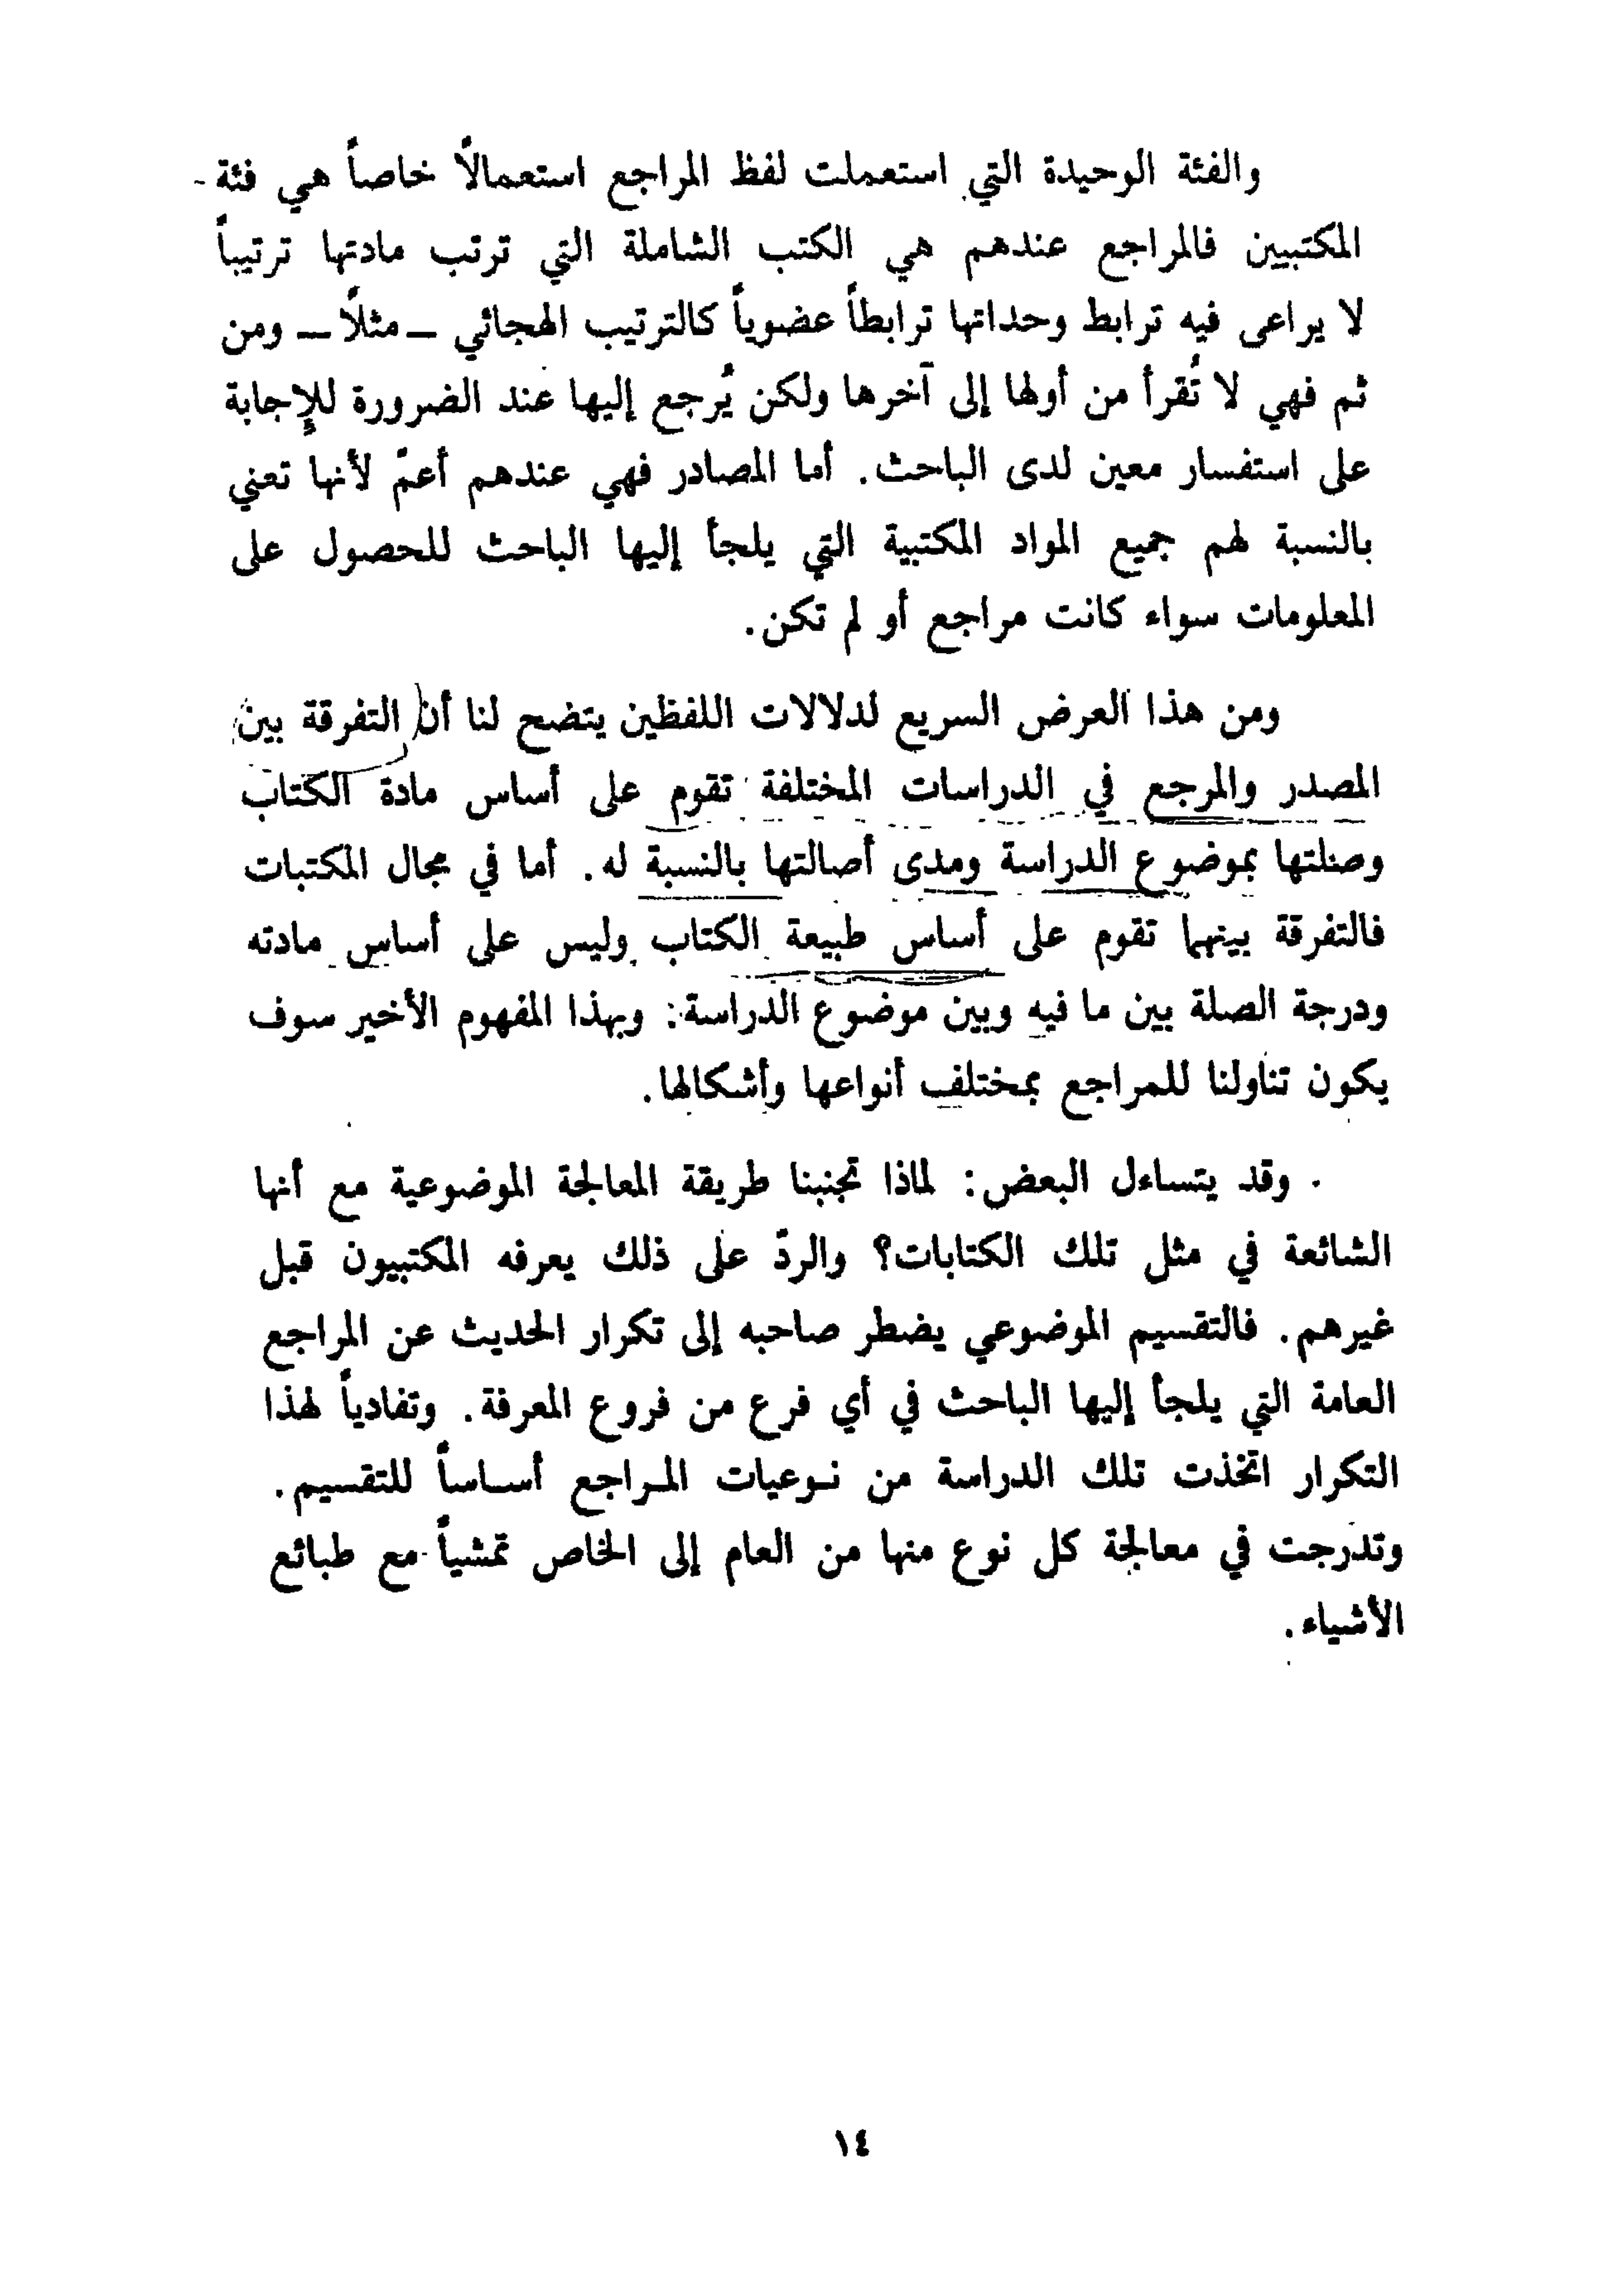 والفئة الوحيدة التي استعملت لفظ المراجع استعمالاً خاصاً هي فئة
المكتبيين فالمراجع عندهم هي الكتب الشاملة التي ترتب مادتها ترتيباً
لا يراعى فيه ترابط وحداتها ترابطاً عضوياً كالترتيب الهجائي – مثلاً – ومن
ثم فهي لا تُقرأ من أولها إلى آخرها ولكن يُرجع إليها عند الضرورة للإجابة
على استفسار معين لدى الباحث. أما المصادر فهي عندهم أعمّ لأنها تعني
بالنسبة لهم جميع المواد المكتبية التي يلجأ إليها الباحث للحصول على
المعلومات سواء كانت مراجع أو لم تكن.
ومن هذا العرض السريع لدلالات اللفظين يتضح لنا أن التفرقة بين
المصدر والمرجع في الدراسات المختلفة تقوم على أساس مادة الكتاب
وصلتها بموضوع الدراسة ومدى أصالتها بالنسبة له. أما في مجال المكتبات
فالتفرقة بينهما تقوم على أساس طبيعة الكتاب وليس على أساس مادته
ودرجة الصلة بين ما فيه وبين موضوع الدراسة: وبهذا المفهوم الأخير سوف
يكون تناولنا للمراجع بمختلف أنواعها وأشكالها.
وقد يتساءل البعض: لماذا تجنبنا طريقة المعالجة الموضوعية مع أنها
الشائعة في مثل تلك الكتابات؟ والردّ على ذلك يعرفه المكتبيون قبل
غيرهم. فالتقسيم الموضوعي يضطر صاحبه إلى تكرار الحديث عن المراجع
العامة التي يلجأ إليها الباحث في أي فرع من فروع المعرفة. وتفادياً لهذا
التكرار اتخذت تلك الدراسة من نوعيات المراجع أساساً للتقسيم.
وتدرجت في معالجة كل نوع منها من العام إلى الخاص تمشياً مع طبائع
الأشياء.
١٤